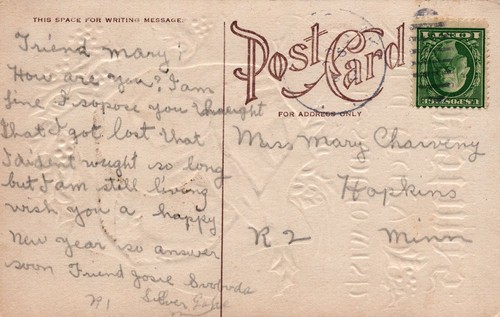 THIS SPACE FOR WRITING MESSAGE.
Post Card
FOR ADDRESS ONLY
Friend Mary;
How are you, I am
fine I supose you thaught
that I got lost that
I dident wright so long
but I am still living
wish you a happy
New Year so answer
soon Friend Josie Svoboda
R 1 Silver Lake
Miss Mary Charveny
Hopkins
R 2 Minn
U.S. POSTAGE
1 CENT 1